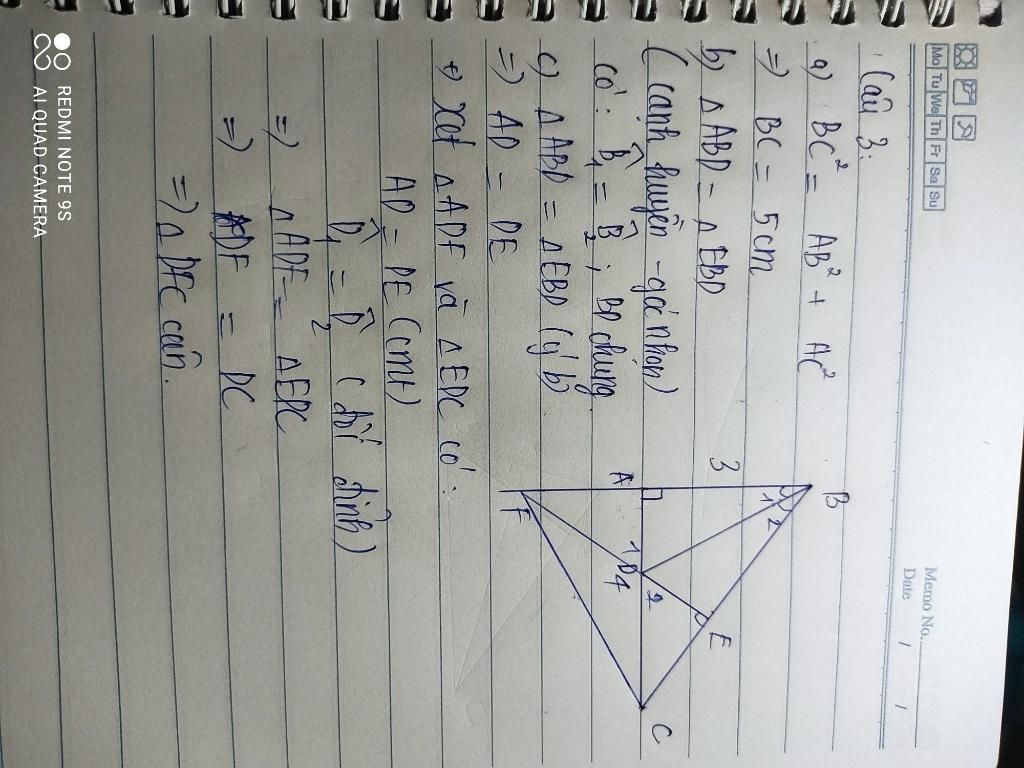 Memo No.
Date / /
Mo Tu We Th Fr Sa Su
Câu 3:
a) BC² = AB² + AC²
=> BC = 5cm
b) △ABD = △EBD
(cạnh huyền - góc nhọn)
có: B̂₁ = B̂₂; BD chung
c) △ABD = △EBD (ý b)
=> AD = DE
+) Xét △ADF và △EDC có:
AD = DE (cmt)
D̂₁ = D̂₂ (đối đỉnh)
=> △ADF = △EDC
=> DF = DC
=> △DFC cân.
B
1 2
3
A
1 D 4
2
E
F
C
REDMI NOTE 9S
AI QUAD CAMERA